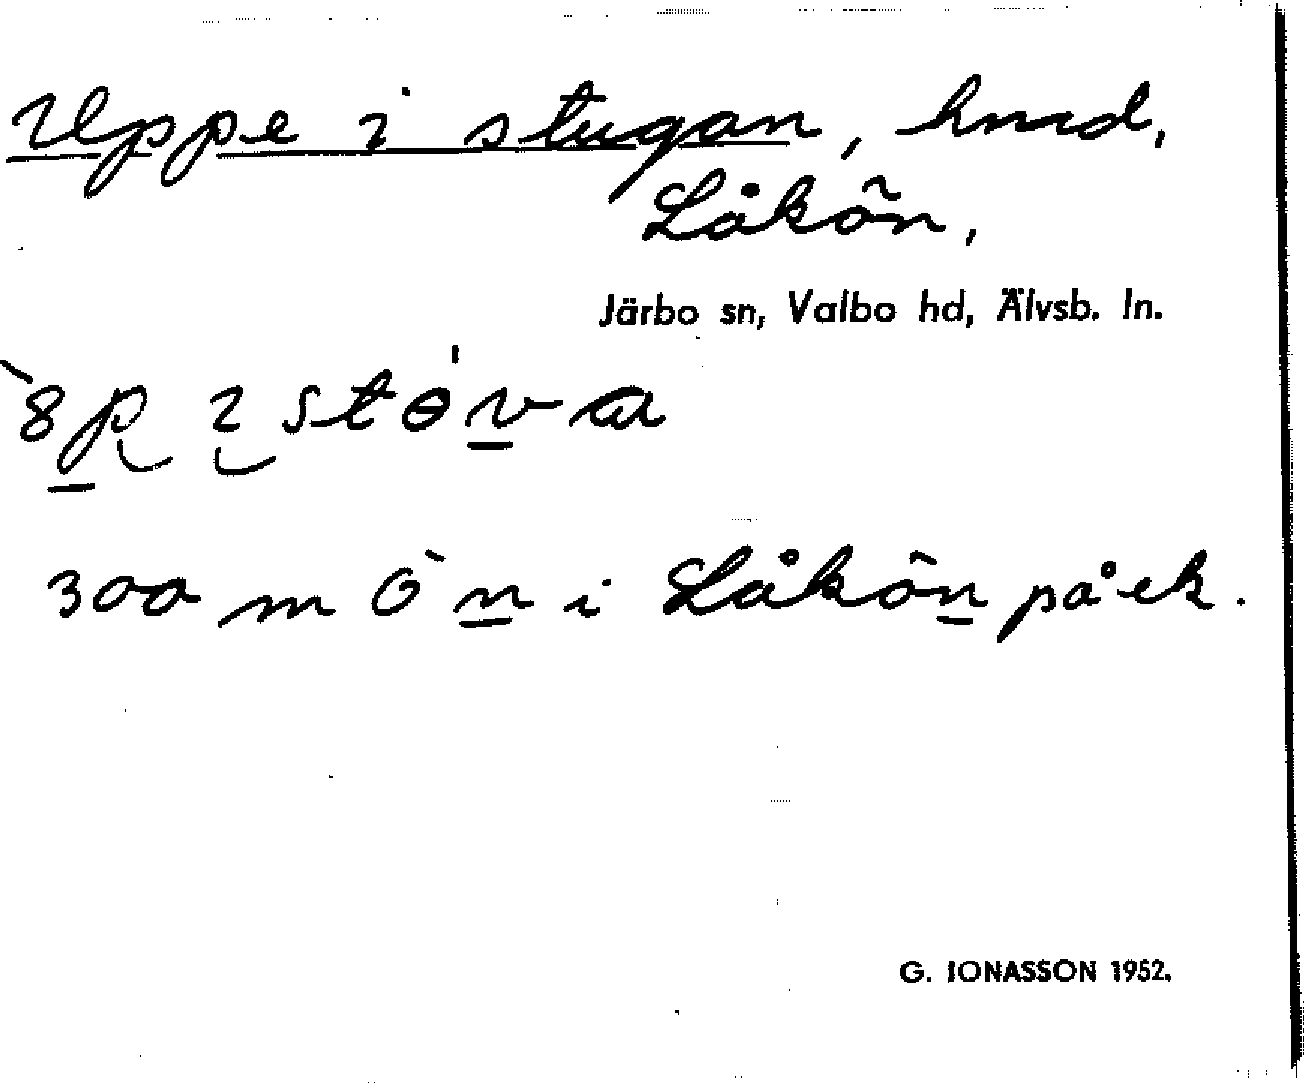 Uppe i stugan, hmd,
Låkön,
Järbo sn, Valbo hd, Älvsb. ln.
300 m Ö n i Låkön på ek.
G. IONASSON 1952.